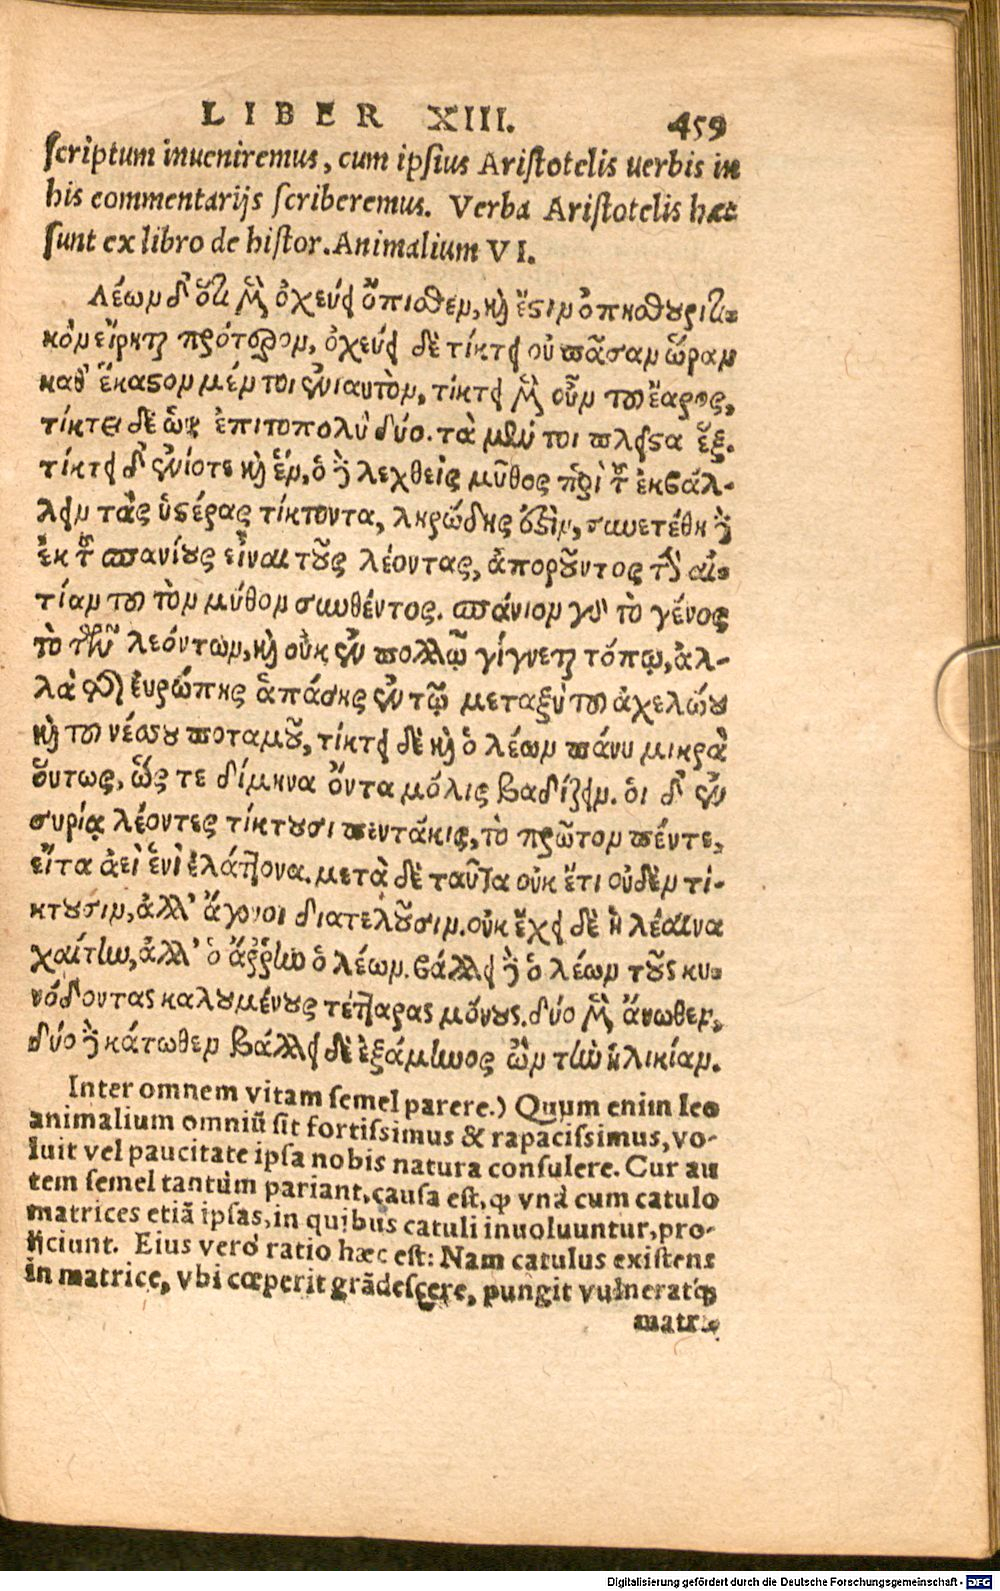 LIBER XIII. 459
scriptum inueniremus, cum ipsius Aristotelis uerbis in
his commentarijs scriberemus. Verba Aristotelis hæc
sunt ex libro de histor. Animalium VI.
Λέων δ᾽ ὅτι μὲν ὀχεύει ὄπισθεν, καὶ ἔστιν ὀπισθουρητι-
κὸν εἴρηται πρότερον, ὀχεύει δὲ τίκτει οὐ πᾶσαν ὥραν
καθ᾽ ἕκαστον μέν τοι ἐνιαυτὸν, τίκτει μὲν οὖν τοῦ ἔαρος,
τίκτει δὲ ὡς ἐπιτοπολὺ δύο. τὰ μέν τοι πλεῖστα ἕξ.
τίκτει δ᾽ ἐνίοτε καὶ ἕν, ὁ δὲ λεχθεὶς μῦθος περὶ τοῦ ἐκβάλ-
λειν τὰς ὑστέρας τίκτοντα, ληρώδης ἐστὶν, συνετέθη δὲ
ἐκ τοῦ σπανίους εἶναι τοὺς λέοντας, ἀποροῦντος τὴν αἰ-
τίαν τοῦ τὸν μύθον συνθέντος. σπάνιον γὰρ τὸ γένος
τὸ τῶν λεόντων, καὶ οὐκ ἐν πολλῷ γίγνεται τόπῳ, ἀλ-
λὰ τῆς εὐρώπης ἁπάσης ἐν τῷ μεταξὺ τοῦ ἀχελώου
καὶ τοῦ νέσου ποταμοῦ, τίκτει δὲ καὶ ὁ λέων πάνυ μικρὰ
οὕτως, ὥς τε δίμηνα ὄντα μόλις βαδίζειν. οἱ δ᾽ ἐν
συρίᾳ λέοντες τίκτουσι πεντάκις, τὸ πρῶτον πέντε,
εἶτα ἀεὶ ἑνὶ ἐλάττονα. μετὰ δὲ ταῦτα οὐκ ἔτι οὐδὲν τί-
κτουσιν, ἀλλ᾽ ἄγονοι διατελοῦσιν. οὐκ ἔχει δὲ ἡ λέαινα
χαίτην, ἀλλ᾽ ὁ ἄρρην ὁ λέων. βάλλει δὲ ὁ λέων τοὺς κυ-
νόδοντας καλουμένους τέτταρας μόνους. δύο μὲν ἄνωθεν,
δύο δὲ κάτωθεν βάλλει δὲ ἑξάμηνος ὢν τὴν ἡλικίαν.
Inter omnem vitam semel parere.) Quum enim leo
animalium omniũ sit fortissimus & rapacissimus, vo-
luit vel paucitate ipsa nobis natura consulere. Cur au
tem semel tantùm pariant, causa est, ꝙ vnà cum catulo
matrices etiã ipsas, in quibus catuli inuoluuntur, pro-
ijciunt. Eius verò ratio hæc est: Nam catulus existens
in matrice, vbi cœperit grãdescere, pungit vulneratꝗ́
matri-
Digitalisierung gefördert durch die Deutsche Forschungsgemeinschaft - DFG